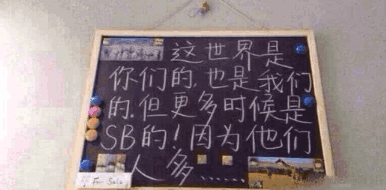 这世界是
你们的,也是我们
的,但更多时候是
SB的!因为他们
人多......
For Sale